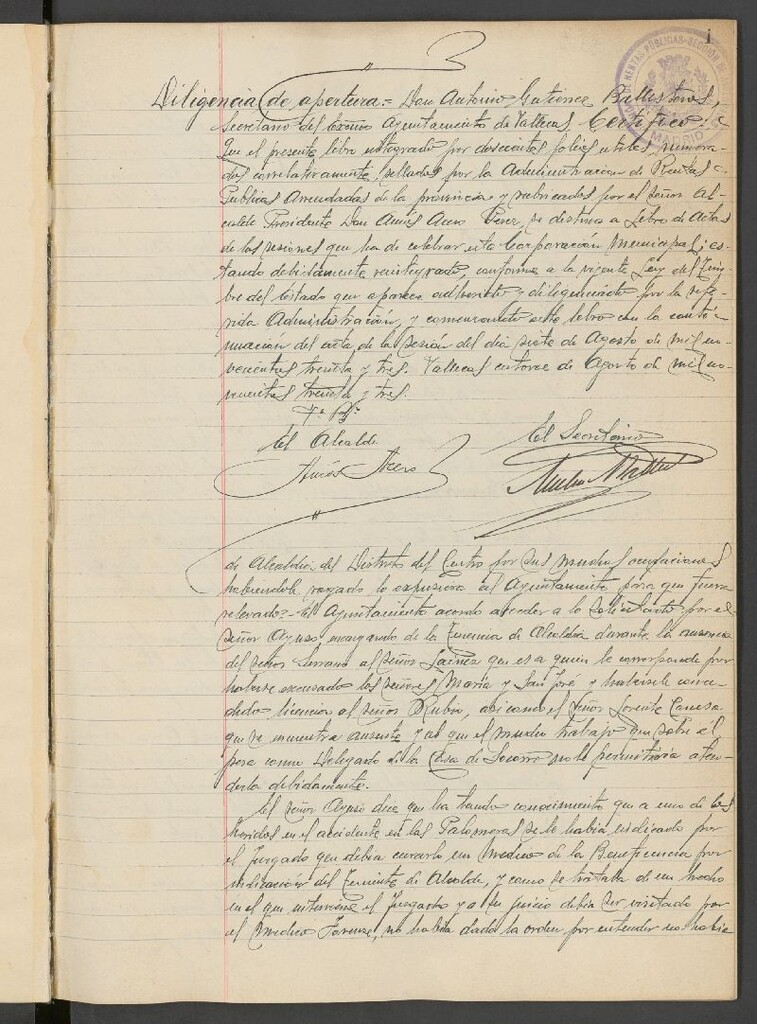 1
Diligencia de apertura = Don Antonio Gutierrez Ballesteros,
Secretario del Excmo Ayuntamiento de Vallecas, Certifico:
Que el presente libro integrado por doscientos folios utiles, numera-
dos correlativamente, sellados por la Administracion de Rentas
Publicas Arrendadas de la provincia y rubricados por el señor Al-
calde Presidente Don Amós Acero Perez, se destina a Libro de Actas
de las sesiones que ha de celebrar esta Corporación Municipal; es-
tando debidamente reintegrado, conforme a la vigente Ley del Tim-
bre del Estado que aparece adherido y diligenciado por la refe-
rida Administración, y comenzando este libro con la conti-
nuacion del acta de la sesión del dia siete de Agosto de mil no-
vecientos treinta y tres. Vallecas catorce de Agosto de mil no-
vecientos treinta y tres.
Vº Bº
El Alcalde El Secretario
Amós Acero
de Alcaldia del Distrito del Centro por sus muchas ocupaciones
habiendole rogado lo expusiera al Ayuntamiento para que fuera
relevado = El Ayuntamiento acordo acceder a lo solicitado por el
señor Ayuso, encargando de la Tenencia de Alcaldia durante la ausencia
del señor Serrano al señor Lainez que es a quien le corresponde por
haberse excusado los señores María y San José y habersele conce-
dido licencia al señor Rubio, asi como el señor Lorente
que se encuentra ausente y a que el mucho trabajo que sobre él
pesa como Delegado de la Casa de Socorro no le permitiria aten-
derla debidamente.
El señor Ayuso dice que ha tenido conocimiento que a uno de los
heridos en el accidente en las Palomeras se le habia indicado por
el Juzgado que debia curarle un Medico de la Beneficencia por
indicación del Teniente de Alcalde, y como se trataba de un hecho
en el que interviene el Juzgado y a su juicio debia ser visitado por
el Medico Forense, no habia dado la orden por entender no habia